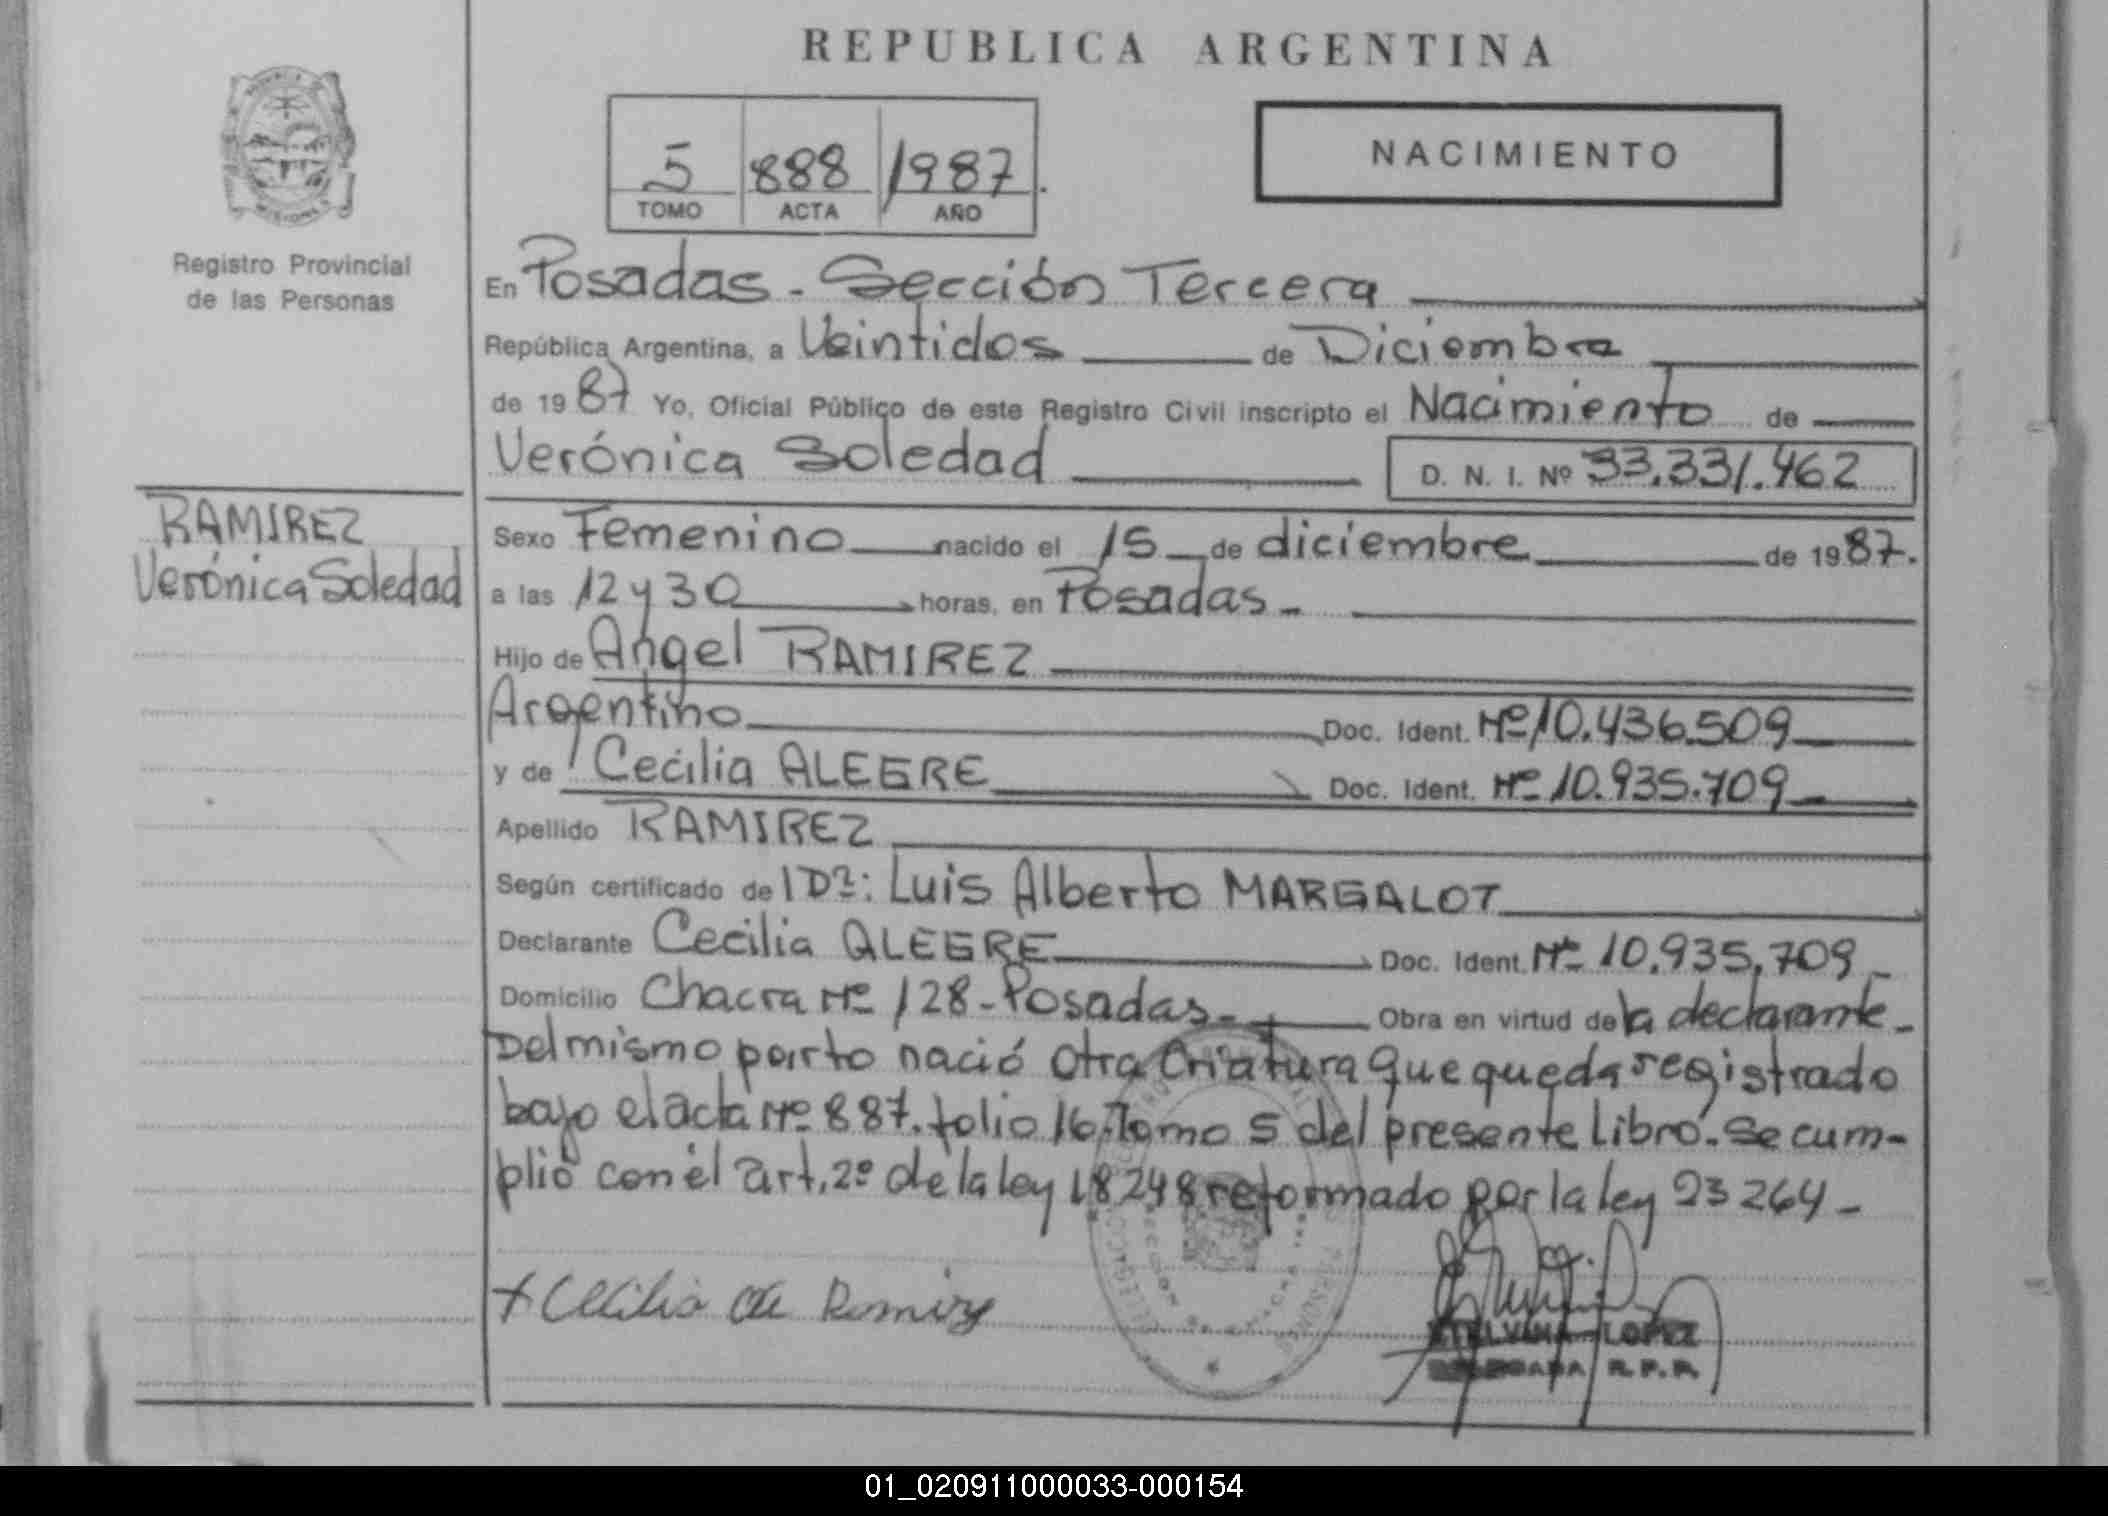 REPUBLICA ARGENTINA
5 888 1987.
TOMO ACTA AÑO
NACIMIENTO
MISIONES
Registro Provincial
de las Personas
En Posadas - Sección Tercera
República Argentina, a Veintidos de Diciembre
de 1987 Yo, Oficial Público de este Registro Civil inscripto el Nacimiento de
Verónica Soledad D. N. I. Nº 33.331.462
RAMIREZ
Verónica Soledad
Sexo Femenino nacido el 15 de diciembre de 1987.
a las 12 y 30 horas, en Posadas -
Hijo de Angel RAMIREZ
Argentino Doc. Ident. Nº 10.436.509
y de Cecilia ALEGRE Doc. Ident. Nº 10.935.709
Apellido RAMIREZ
Según certificado de l Dr: Luis Alberto MARGALOT
Declarante Cecilia ALEGRE Doc. Ident. Nº 10.935.709
Domicilio Chacra Nº 128 - Posadas - Obra en virtud de la declarante -
Del mismo parto nació otra Criatura que queda registrado
bajo el acta Nº 887. folio 16. Tomo 5 del presente Libro. Se cum-
plió con el art. 2º de la ley 18248 reformado por la ley 23264 -
+ Cecilia de Ramirez
ETELVINA LOPEZ
DELEGADA R.P.P.
01_020911000033-000154